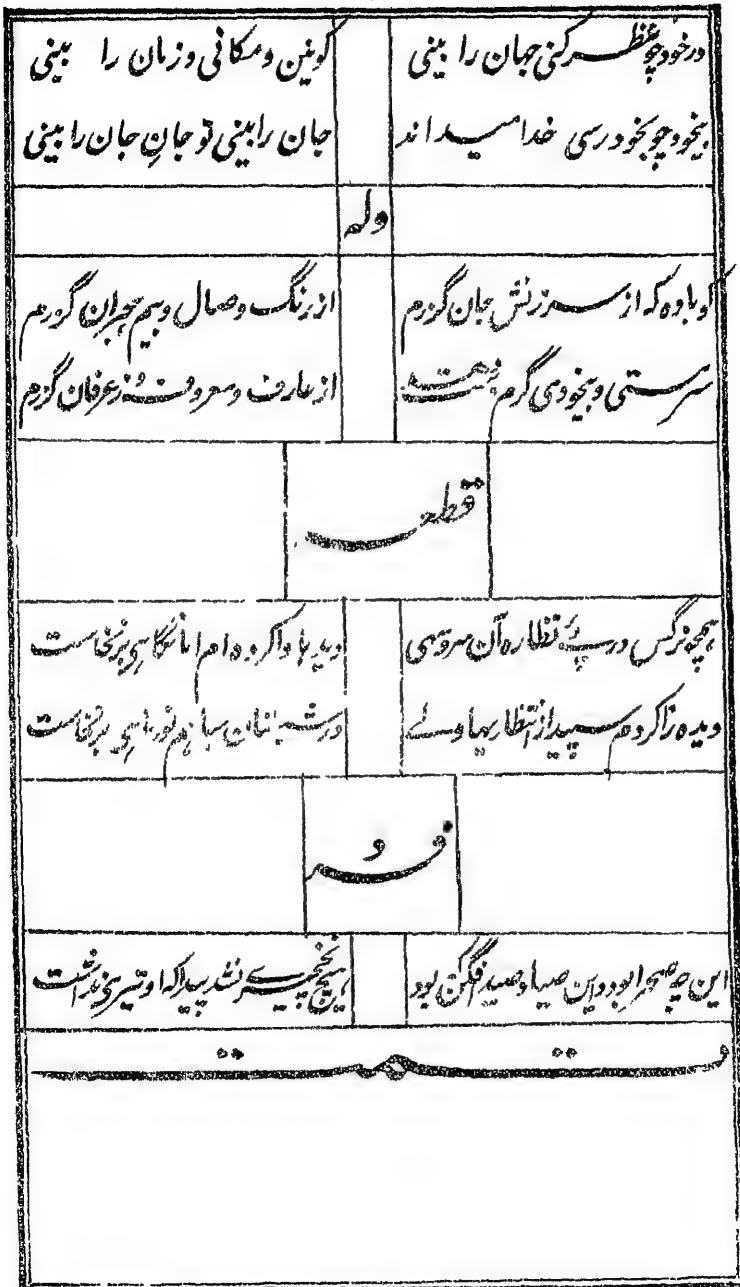 در خود چو نظر کنی جهان را بینی کونین و مکانی و زمان را بینی
بیخود چو بخود رسی خدا میداند جان را بینی تو جانِ جان را بینی
وله
کو باده که از سرزنش جان گزرم از رنگ وصال و بیم هجران گزرم
سرمستی و بیخودی گرم از عارف و معروف و ز عرفان گزرم
قطعه
همچو نرگس در پئے نظاره آن سرو سهی دیدها واکرده ام اما نگاهی برنخاست
دیده را کردم سپید از انتظاریها ولے در شبستان سیاهم نور ماهی برنخاست
فرد
این چه صحرا بود و این صیاد صید افگن بود هیچ نخچیرے نشد پیدا که او تیری نداشت
تمت